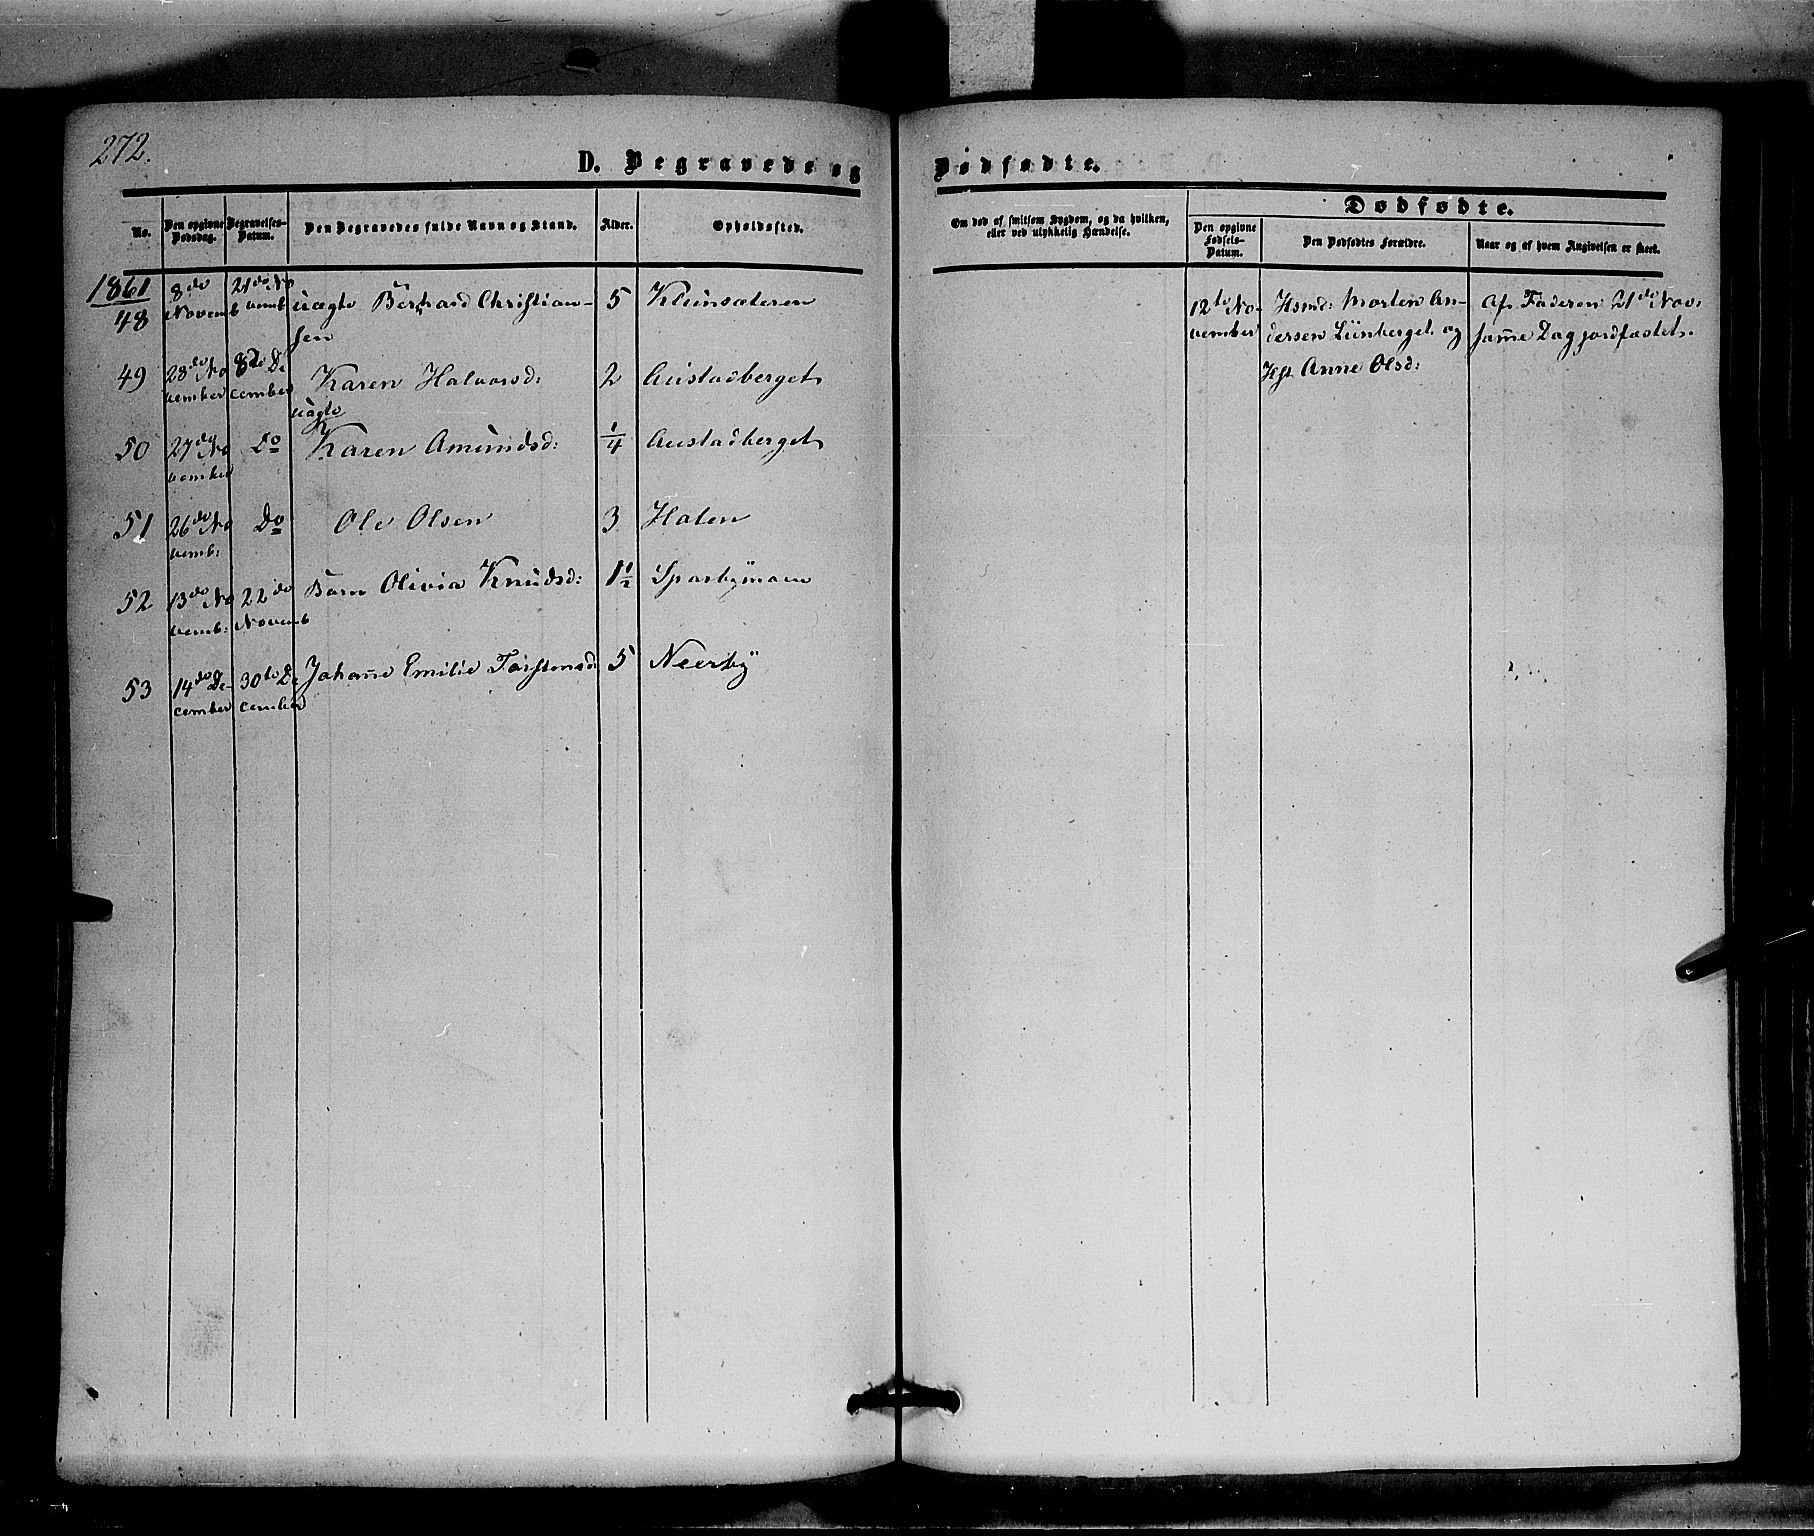 272.
D. Begravede og Dødfødte.
No.
Den opgivne Dødsdag.
Begravelses-Datum.
Den Begravedes fulde Navn og Stand.
Alder.
Opholdssted.
Om død af smitsom Sygdom, og da hvilken,
eller ved ulykkelig Hændelse.
Dødfødte.
Den opgivne Fødsels-Datum.
Den Dødfødtes Forældre.
Naar og af hvem Angivelsen er skeet.
1861
48 8de Novemb 21de Novemb uægte Bernhard Christian- 5
sen
49 28de November 8de December Karen Halvorsd: 2 Austadberget
uægte
50 27de November Do Karen Amundsd: 1/4 Austadberget
51 26de Novemb: Do Ole Olsen 3
52 13de Novemb: 22de Novemb Barn Olivia Knudsd: 1 1/2
53 14de December 30te December Johan̄e Emilie Torstensd: 5 Neerby
12te No- Hsmd: Morten An- Af Faderen 21de Nov.
vember dersen Lünberget og sam̄e Dag jordfæstet.
Hst. Anne Olsd: